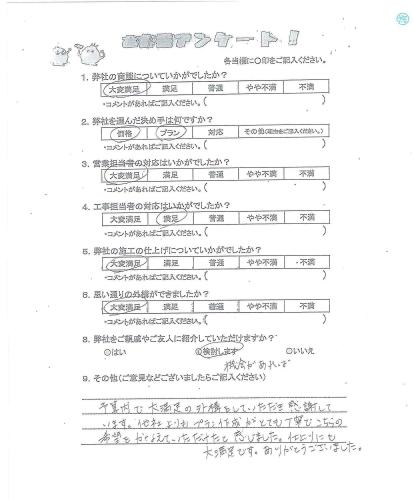 お客様アンケート!
各当欄に○印をご記入ください。
1. 弊社の商談についていかがでしたか?
大変満足 満足 普通 やや不満 不満
・コメントがあればご記入ください。( )
2. 弊社を選んだ決め手は何ですか?
価格 プラン 対応 その他(理由をご記入ください。)
・コメントがあればご記入ください。( )
3. 営業担当者の対応はいかがでしたか?
大変満足 満足 普通 やや不満 不満
・コメントがあればご記入ください。( )
4. 工事担当者の対応はいかがでしたか?
大変満足 満足 普通 やや不満 不満
・コメントがあればご記入ください。( )
5. 弊社の施工の仕上げについていかがでしたか?
大変満足 満足 普通 やや不満 ・不満
・コメントがあればご記入ください。( )
6. 思い通りの外構ができましたか?
大変満足 満足 普通 やや不満 不満
・コメントがあればご記入ください。( )
8. 弊社をご親戚やご友人に紹介していただけますか?
○はい ○検討します ○いいえ
機会があれば
9. その他(ご意見などございましたらご記入ください)
予算内で大満足の外構をしていただき感謝して
います。他社よりもプラン作成がとても丁寧でこちらの
希望をかなえていただけたと感じました。仕上りにも
大満足です。ありがとうございました。